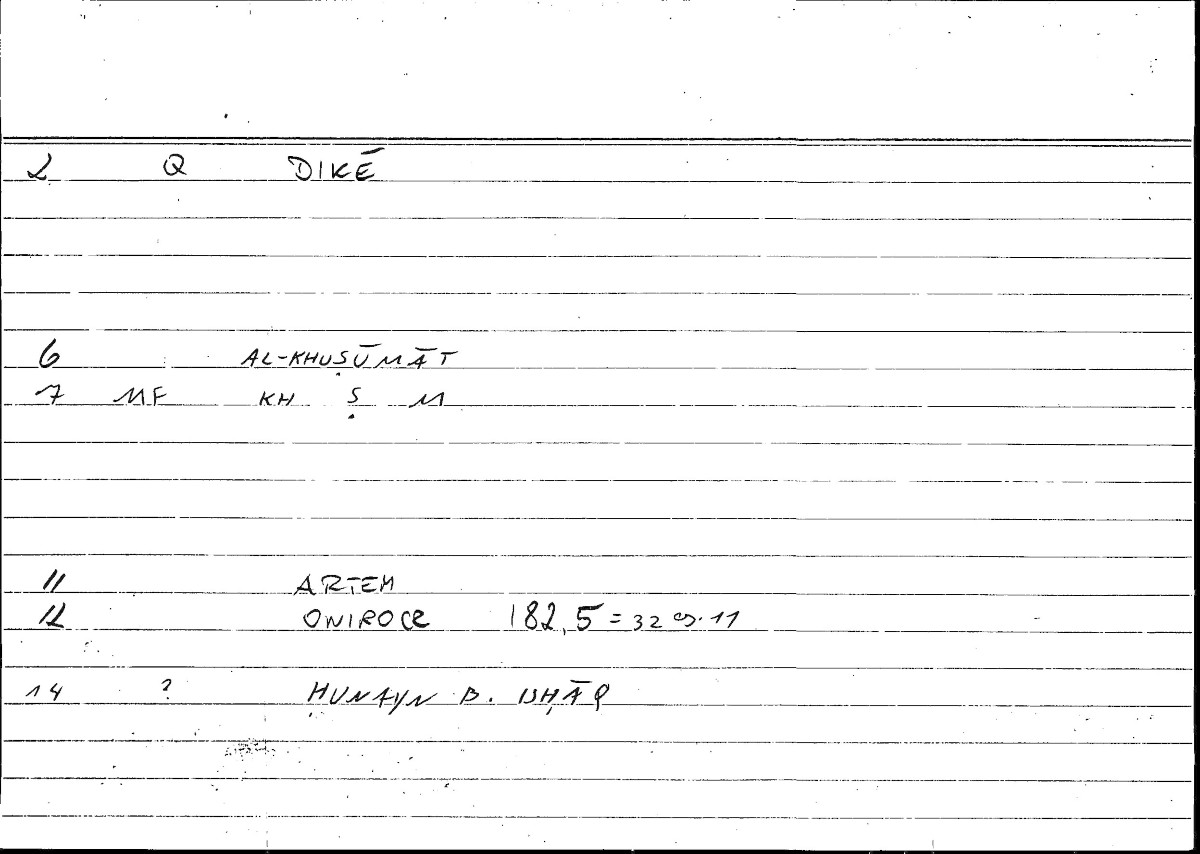 2 Q DIKĒ
6 AL-KHUṢŪMĀT
7 MF KH Ṣ M
11 ARTEM
12 ONIROCR 182,5 = 32 11
14 ? ḤUNAYN B. ISḤĀQ